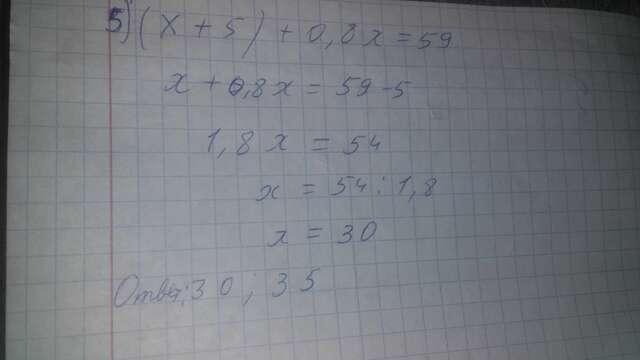 5) (x + 5) + 0,8x = 59
x + 0,8x = 59 - 5
1,8x = 54
x = 54 : 1,8
x = 30
Ответ: 30 ; 35